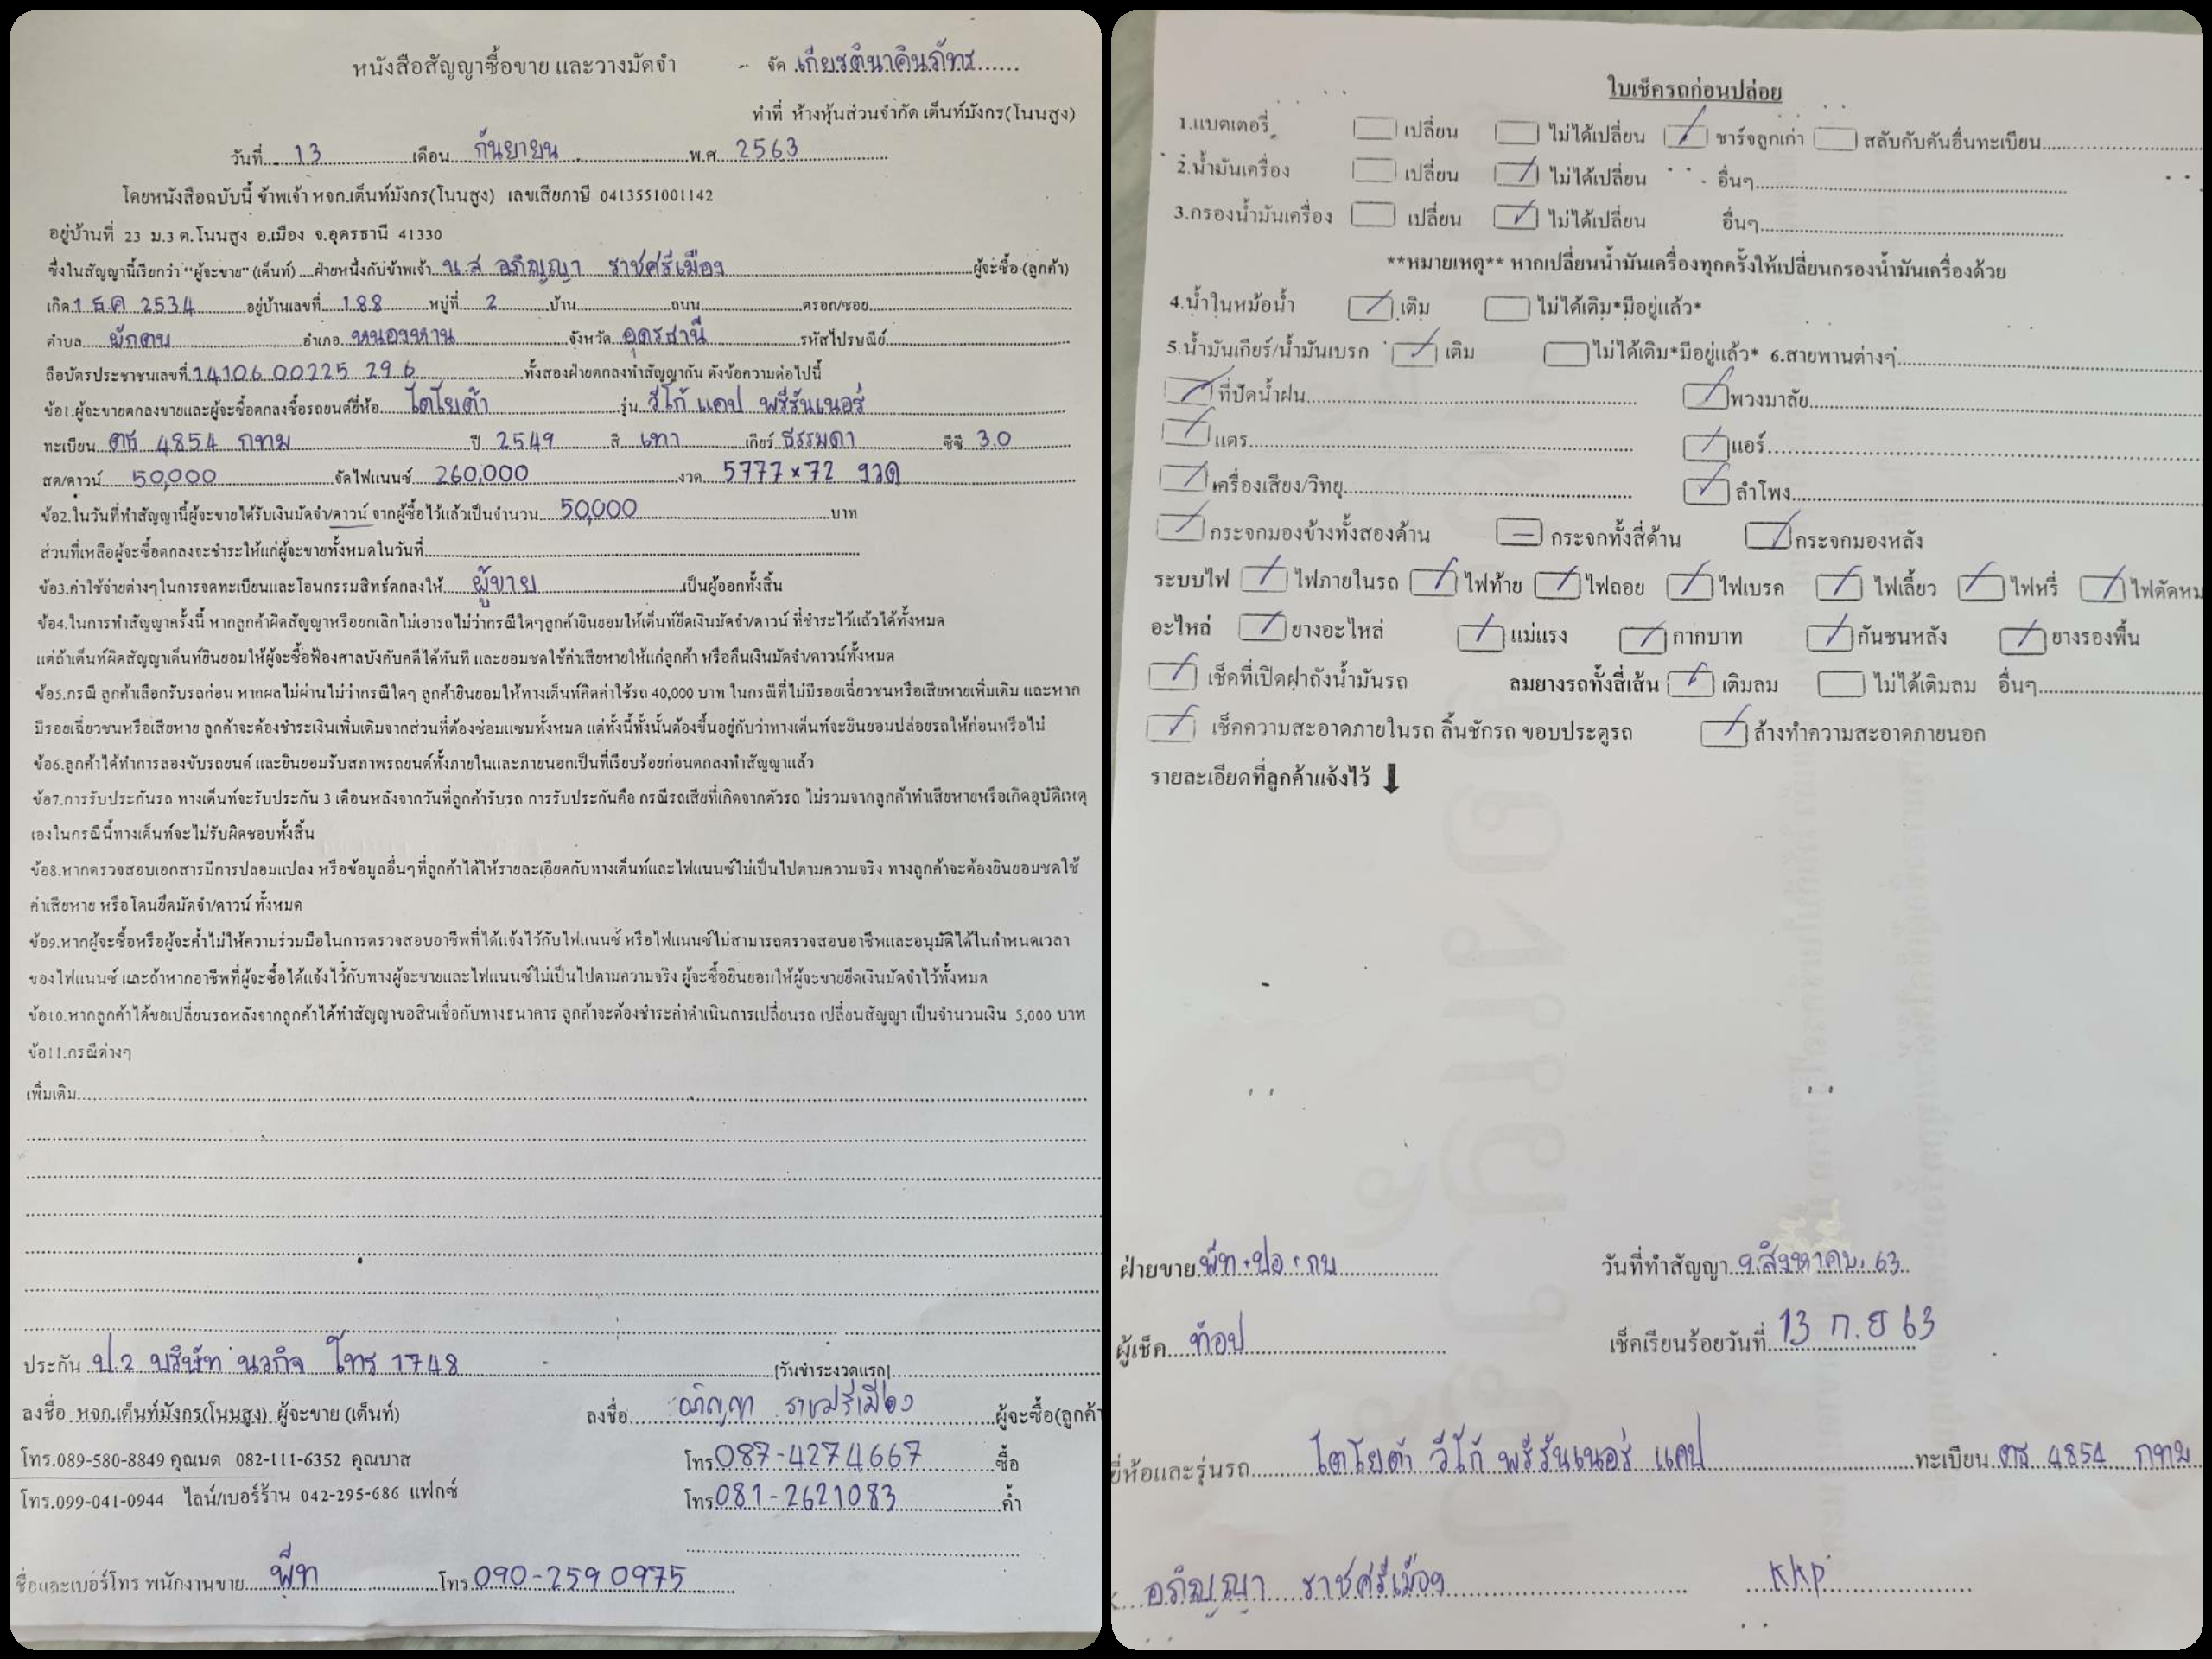 หนังสือสัญญาซื้อขาย และวางมัดจำ - จัด เกียรตินาคินภัทร
ทำที่ ห้างหุ้นส่วนจำกัด เต็นท์มังกร(โนนสูง)
วันที่ 13 เดือน กันยายน พ.ศ. 2563
โดยหนังสือฉบับนี้ ข้าพเจ้า หจก.เต็นท์มังกร(โนนสูง) เลขเสียภาษี 0413551001142
อยู่บ้านที่ 23 ม.3 ต.โนนสูง อ.เมือง จ.อุดรธานี 41330
ซึ่งในสัญญานี้เรียกว่า "ผู้จะขาย" (เต็นท์) ....ฝ่ายหนึ่งกับข้าพเจ้า น.ส อภิญญา ราชศรีเมือง ผู้จะซื้อ (ลูกค้า)
เกิด 1 ธ.ค 2534 อยู่บ้านเลขที่ 188 หมู่ที่ 2 บ้าน ถนน ตรอก/ซอย
ตำบล ผักตบ อำเภอ หนองหาน จังหวัด อุดรธานี รหัสไปรษณีย์
ถือบัตรประชาชนเลขที่ 14106 00225 29 6 ทั้งสองฝ่ายตกลงทำสัญญากัน ดังข้อความต่อไปนี้
ข้อ1.ผู้จะขายตกลงขายและผู้จะซื้อตกลงซื้อรถยนต์ยี่ห้อ โตโยต้า รุ่น วีโก้ แคป พรีรันเนอร์
ทะเบียน ตธ 4854 กทม ปี 2549 สี เทา เกียร์ ธรรมดา ซีซี 3.0
สด/ดาวน์ 50,000 จัดไฟแนนซ์ 260,000 งวด 5777 × 72 งวด
ข้อ2.ในวันที่ทำสัญญานี้ผู้จะขายได้รับเงินมัดจำ/ดาวน์ จากผู้ซื้อไว้แล้วเป็นจำนวน 50,000 บาท
ส่วนที่เหลือผู้จะซื้อตกลงจะชำระให้แก่ผู้จะขายทั้งหมดในวันที่
ข้อ3.ค่าใช้จ่ายต่างๆในการจดทะเบียนและโอนกรรมสิทธ์ตกลงให้ ผู้ขาย เป็นผู้ออกทั้งสิ้น
ข้อ4.ในการทำสัญญาครั้งนี้ หากลูกค้าผิดสัญญาหรือยกเลิกไม่เอารถไม่ว่ากรณีใดๆลูกค้ายินยอมให้เต็นท์ยึดเงินมัดจำ/ดาวน์ ที่ชำระไว้แล้วได้ทั้งหมด
แต่ถ้าเต็นท์ผิดสัญญาเต็นท์ยินยอมให้ผู้จะซื้อฟ้องศาลบังคับคดีได้ทันที และยอมชดใช้ค่าเสียหายให้แก่ลูกค้า หรือคืนเงินมัดจำ/ดาวน์ทั้งหมด
ข้อ5.กรณี ลูกค้าเลือกรับรถก่อน หากผลไม่ผ่านไม่ว่ากรณีใดๆ ลูกค้ายินยอมให้ทางเต็นท์คิดค่าใช้รถ 40,000 บาท ในกรณีที่ไม่มีรอยเฉี่ยวชนหรือเสียหายเพิ่มเติม และหาก
มีรอยเฉี่ยวชนหรือเสียหาย ลูกค้าจะต้องชำระเงินเพิ่มเติมจากส่วนที่ต้องซ่อมแซมทั้งหมด แต่ทั้งนี้ทั้งนั้นต้องขึ้นอยู่กับว่าทางเต็นท์จะยินยอมปล่อยรถให้ก่อนหรือไม่
ข้อ6.ลูกค้าได้ทำการลองขับรถยนต์ และยินยอมรับสภาพรถยนต์ทั้งภายในและภายนอกเป็นที่เรียบร้อยก่อนตกลงทำสัญญาแล้ว
ข้อ7.การรับประกันรถ ทางเต็นท์จะรับประกัน 3 เดือนหลังจากวันที่ลูกค้ารับรถ การรับประกันคือ กรณีรถเสียที่เกิดจากตัวรถ ไม่รวมจากลูกค้าทำเสียหายหรือเกิดอุบัติเหตุ
เองในกรณีนี้ทางเต็นท์จะไม่รับผิดชอบทั้งสิ้น
ข้อ8.หากตรวจสอบเอกสารมีการปลอมแปลง หรือข้อมูลอื่นๆที่ลูกค้าได้ให้รายละเอียดกับทางเต็นท์และไฟแนนซ์ไม่เป็นไปตามความจริง ทางลูกค้าจะต้องยินยอมชดใช้
ค่าเสียหาย หรือโดนยึดมัดจำ/ดาวน์ ทั้งหมด
ข้อ9.หากผู้จะซื้อหรือผู้จะค้ำไม่ให้ความร่วมมือในการตรวจสอบอาชีพที่ได้แจ้งไว้กับไฟแนนซ์ หรือไฟแนนซ์ไม่สามารถตรวจสอบอาชีพและอนุมัติได้ในกำหนดเวลา
ของไฟแนนซ์ และถ้าหากอาชีพที่ผู้จะซื้อได้แจ้งไว้กับทางผู้จะขายและไฟแนนซ์ไม่เป็นไปตามความจริง ผู้จะซื้อยินยอมให้ผู้จะขายยึดเงินมัดจำไว้ทั้งหมด
ข้อ10.หากลูกค้าได้ขอเปลี่ยนรถหลังจากลูกค้าได้ทำสัญญาขอสินเชื่อกับทางธนาคาร ลูกค้าจะต้องชำระค่าดำเนินการเปลี่ยนรถ เปลี่ยนสัญญา เป็นจำนวนเงิน 5,000 บาท
ข้อ11.กรณีต่างๆ
เพิ่มเติม
ประกัน ป.2 บริษัท นวกิจ โทร 1748 [วันชำระงวดแรก]
ลงชื่อ หจก.เต็นท์มังกร(โนนสูง) ผู้จะขาย (เต็นท์) ลงชื่อ อภิญญา ราชศรีเมือง ผู้จะซื้อ(ลูกค้า
โทร.089-580-8849 คุณมด 082-111-6352 คุณบาส โทร 087-4274667 ซื้อ
โทร.099-041-0944 ไลน์/เบอร์ร้าน 042-295-686 แฟกซ์ โทร 081-2621083 ค้ำ
ชื่อและเบอร์โทร พนักงานขาย พีท โทร 090-2590975
ใบเช็ครถก่อนปล่อย
1.แบตเตอรี่ เปลี่ยน ไม่ได้เปลี่ยน ชาร์จลูกเก่า สลับกับคันอื่นทะเบียน
2.น้ำมันเครื่อง เปลี่ยน ไม่ได้เปลี่ยน อื่นๆ
3.กรองน้ำมันเครื่อง เปลี่ยน ไม่ได้เปลี่ยน อื่นๆ
**หมายเหตุ** หากเปลี่ยนน้ำมันเครื่องทุกครั้งให้เปลี่ยนกรองน้ำมันเครื่องด้วย
4.น้ำในหม้อน้ำ เติม ไม่ได้เติม*มีอยู่แล้ว*
5.น้ำมันเกียร์/น้ำมันเบรก เติม ไม่ได้เติม*มีอยู่แล้ว* 6.สายพานต่างๆ
ที่ปัดน้ำฝน พวงมาลัย
แตร แอร์
เครื่องเสียง/วิทยุ ลำโพง
กระจกมองข้างทั้งสองด้าน กระจกทั้งสี่ด้าน กระจกมองหลัง
ระบบไฟ ไฟภายในรถ ไฟท้าย ไฟถอย ไฟเบรค ไฟเลี้ยว ไฟหรี่ ไฟตัดหม
อะไหล่ ยางอะไหล่ แม่แรง กากบาท กันชนหลัง ยางรองพื้น
เช็คที่เปิดฝาถังน้ำมันรถ ลมยางรถทั้งสี่เส้น เติมลม ไม่ได้เติมลม อื่นๆ
เช็คความสะอาดภายในรถ ลิ้นชักรถ ขอบประตูรถ ล้างทำความสะอาดภายนอก
รายละเอียดที่ลูกค้าแจ้งไว้
ฝ่ายขาย พีท+ปอ+กบ วันที่ทำสัญญา 9 สิงหาคม 63
ผู้เช็ค ท๊อป เช็คเรียบร้อยวันที่ 13 ก.ย 63
ยี่ห้อและรุ่นรถ โตโยต้า วีโก้ พรีรันเนอร์ แคป ทะเบียน ตธ 4854 กทม
อภิญญา ราชศรีเมือง KKP